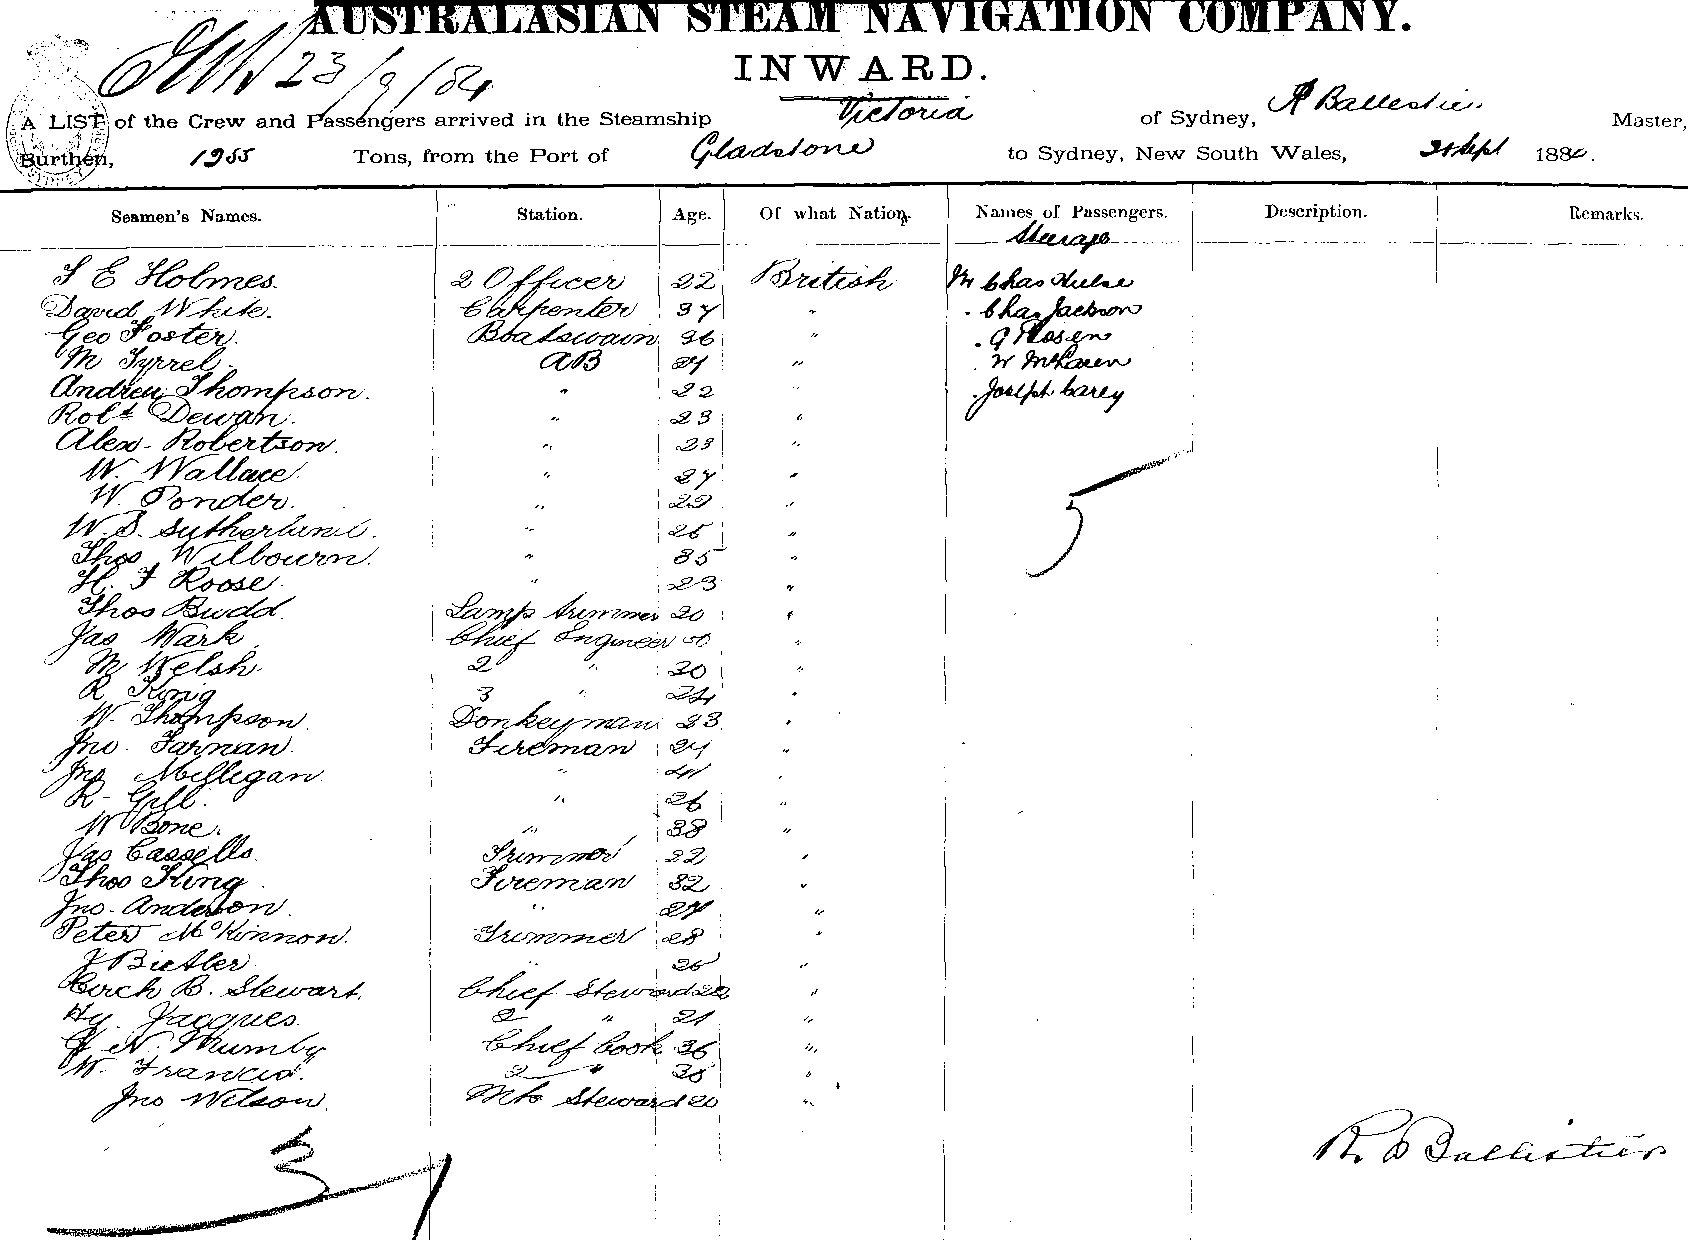 AUSTRALASIAN STEAM NAVIGATION COMPANY.
23/9/84
INWARD.
A LIST of the Crew and Passengers arrived in the Steamship Victoria of Sydney, Master,
Burthen, Tons, from the Port of Gladstone to Sydney, New South Wales, Sept 188
Seamen's Names. Station. Age. Of what Nation. Names of Passengers. Description. Remarks.
Steerage
E Holmes. 2 Officer 22 British Mr Chas Hulse
David White. Carpenter 37 " " Chas Jackson
Geo Foster. Boatswain 36 " " G Rosen
M Tyrrel. AB " " W McLaren
Andrew Thompson. " 22 " " Joseph Carey
Robt Dewan. " 23 "
Alex Robertson. " 23 "
W. Wallace. " 27 "
W. Ponder. " "
W. S. Sutherland. " 25 "
Thos Wilbourn. " 35 "
H. F Roose. " 23 "
Thos Budd. Lamp trimmer 20 "
Jas Wark. Chief Engineer "
M Welsh. 2 " 30 "
R King 3 " 24 "
W. Thompson. Donkeyman 23 "
Jno. Farnan. Fireman "
Jno Milligan. " "
R. Gill. " 26 "
W Bone. " 38 "
Jas Cassells. Trimmer 22 "
Thos King. Fireman 32 "
Jno. Anderson. " 27 "
Peter McKinnon. Trimmer 28 "
J " "
B. Stewart. Chief Steward "
Hy. Jacques. 2 " 21 "
N. Mumby Chief Cook 36 "
W. Francis. 2 " "
Jno Wilson. Steward 20 "
5
31